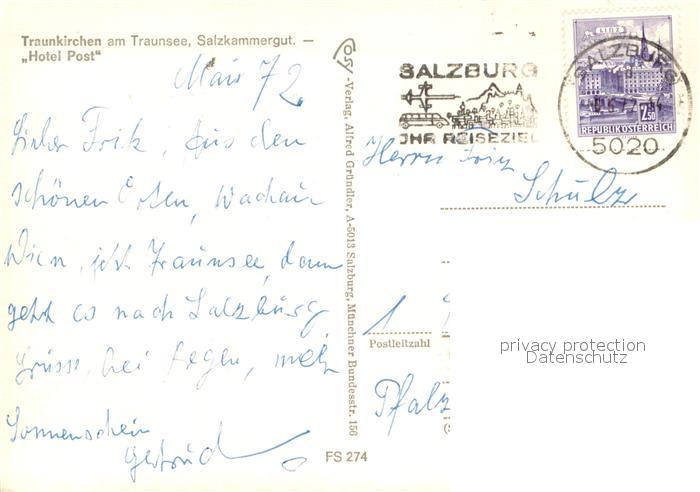 Traunkirchen am Traunsee, Salzkammergut. —
„Hotel Post"
Mai 72
Lieber Fritz, Aus den
schönen Orten, Wachau
Wien, jetzt Traunsee, dann
geht es nach Salzburg
Grüsse bei Regen, mehr
Sonnenschein
Gertrud
Cosy-Verlag, Alfred Gründler, A-5013 Salzburg, Münchner Bundesstr. 156
FS 274
SALZBURG
IHR REISEZIEL
SALZBURG
5020
LINZ
2.50
REPUBLIK ÖSTERREICH
Herrn Fritz
Schulz
1
Postleitzahl
Pfalz
privacy protection
Datenschutz